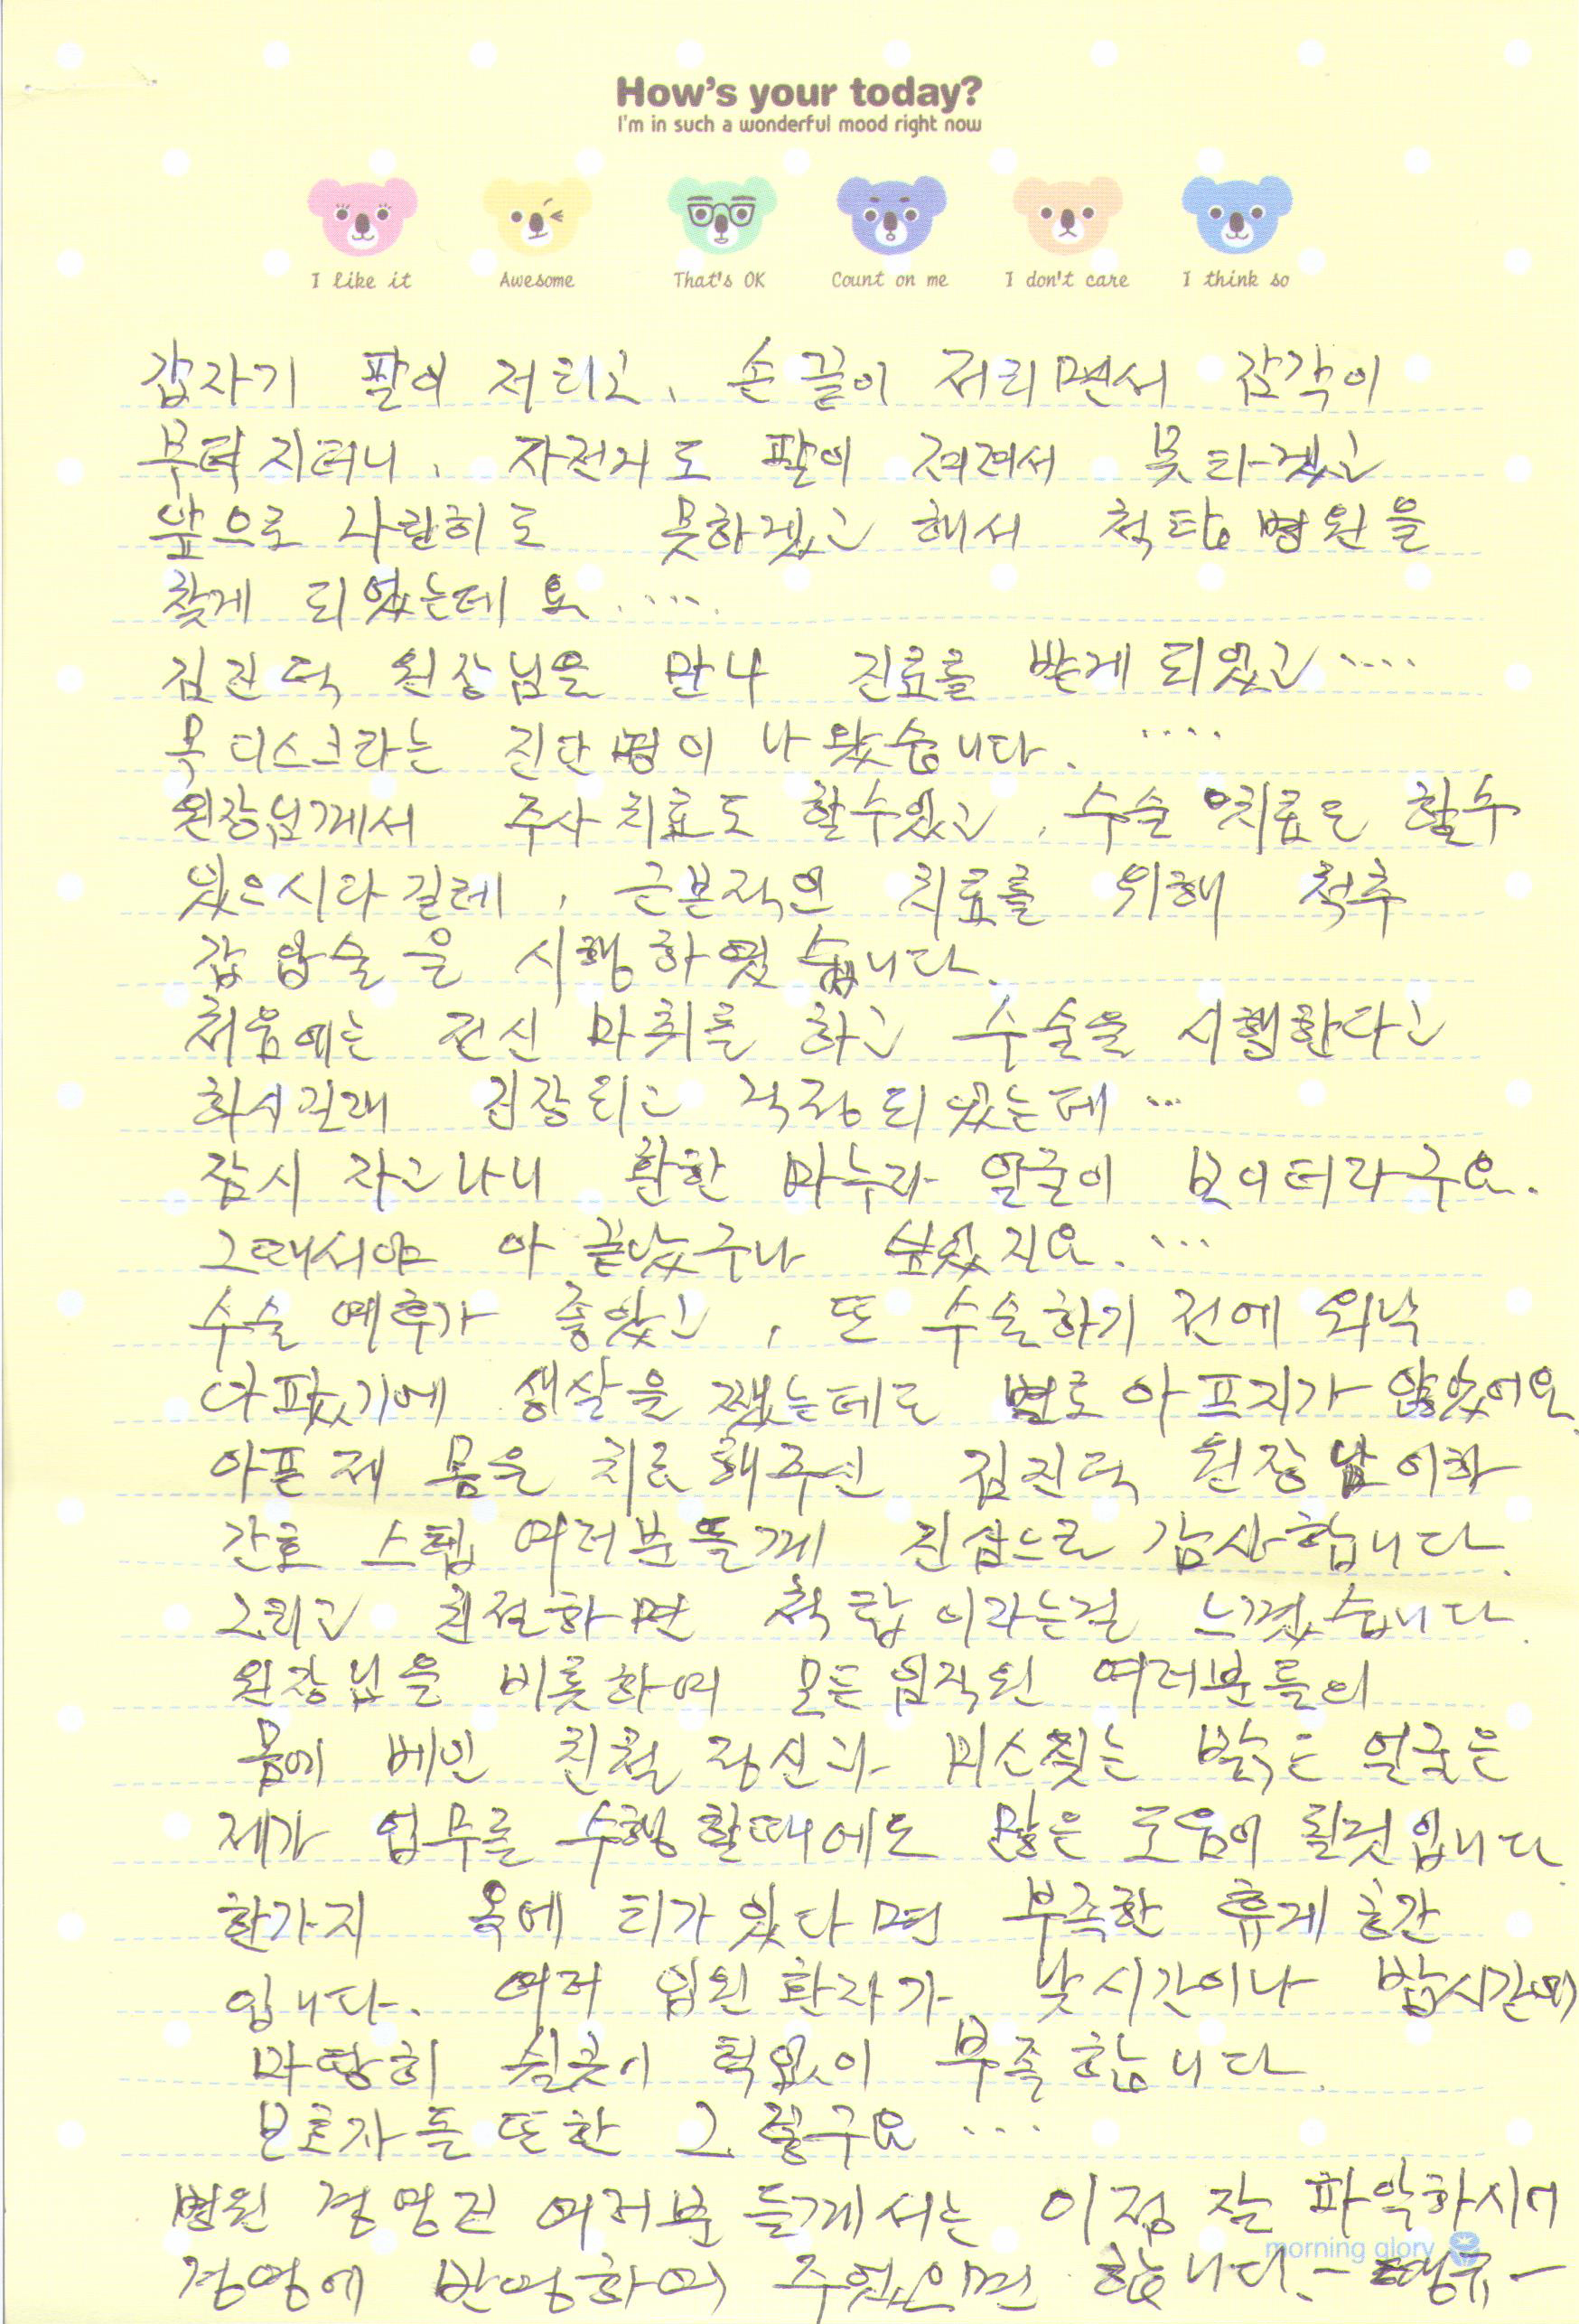 How's your today?
I'm in such a wonderful mood right now
I like it Awesome That's OK Count on me I don't care I think so
갑자기 팔이 저리고, 손끝이 저리면서 감각이
부터지더니, 자전거도 팔이 저려서 못타겠고
앞으로 나란히도 못하겠고 해서 척탑병원을
찾게 되었는데요.....
김진덕 원장님을 만나 진료를 받게 되었고....
목디스크라는 진단명이 나왔습니다. ....
원장님께서 주사치료도 할수있고, 수술 치료도 할수
있으시다길레, 근본적인 치료를 위해 척추
감압술을 시행하였습니다.
처음에는 전신 마취를 하고 수술을 시행한다고
하시길래 긴장되고 걱정되었는데...
잠시 자고나니 환한 마누라 얼굴이 보이더라구요.
그때서야 아 끝났구나 싶었지요. ...
수술 예후가 좋았고, 또 수술하기 전에 워낙
아팠기에 생살을 쨌는데도 별로 아프지가 않았어요.
아픈 제 몸을 치료해주신 김진덕 원장님 이하
간호 스텝 여러분들께 진심으로 감사합니다.
그리고 친절하면 척탑이라는걸 느꼈습니다.
원장님을 비롯하여 모든 임직원 여러분들의
몸에 베인 친절 정신과 미소짓는 밝은 얼굴은
제가 업무를 수행할때에도 많은 도움이 될것입니다.
한가지 옥에 티가 있다면 부족한 휴게 공간
입니다. 여러 입원환자가 낮시간이나 밤시간에
마땅히 쉴곳이 턱없이 부족합니다.
보호자들 또한 그렇구요 ...
병원 경영진 여러분들께서는 이점 잘 파악하시어
경영에 반영하여 주었으면 합니다.
morning glory